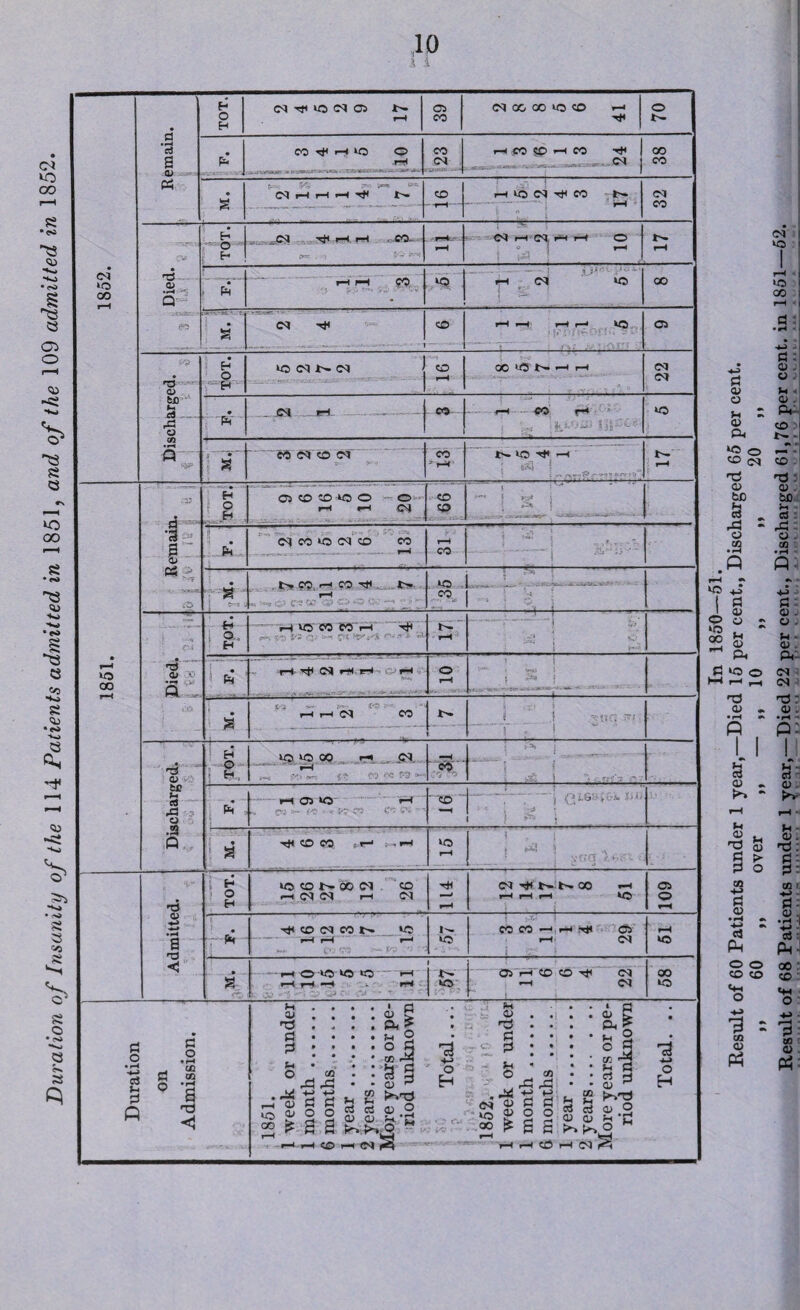 10
Duration of Insanity of the 114 Patients admitted in 1851, and of the 109 admitted in 1852.
1851. 1852.
Duration on Admission. Admitted. Discharged. Died. Remain. Discharged. Died. Remain.
M. F. TOT. M. F. TOT. M. F. TOT. M. F. TOT. M. F. TOT. M. F. TOT. M. F. TOT.
1851.
1 week or under 11 4 15 4 1 5 1 1 7 2 9 3 2 5 2 2 2 2
1 month ........ 10 16 26 6 9 15 1 4 5 3 3 6 2 2 1 3 4
6 months........ 15 12 27 3 5 8 1 2 3 11 5 16 6 1 7 4 4 1 4 5
year .......... 5 3 8 2 1 3 3 2 5 2 2 1 1 1 1 2
2 years.......... 5 7 12 1 1 1 1 4 6 10 1 1 4 5 9
More years or period unknown 11 15 26 1 1 2 3 1 4 7 13 20 3 3 7 10 17
Total.... 57 57 114 15 16 31 7 10 17 35 31 66 13 3 16 6 5 11 16 23 39
1852.
1 week or under 9 3 12 7 1 8 1 1 2 1 1 2
1 month ........ 11 3 14 5 5 1 1 5 3 8
6 months ...... 6 11 17 4 3 7 2 2 2 6 8
1 year .......... 6 1 7 1 1 1 1 4 1 5
2 years.......... 4 4 8 1 1 1 1 3 3 6
More years or period unknown 22 29 51 5 5 10 17 24 41
Total... 58 51 109 17 5 22 9 8 17 32 38 70
In 1850—51.
Result of 60 Patients under 1 year,—Died 15 per cent., Discharged 65 per cent.
„ 60 „ over 1 „ — „ 10 „ „ 20 „
Result of 68 Patients under 1 year,—Died 22 per cent., Discharged 61,76 per cent. in 1851—52.